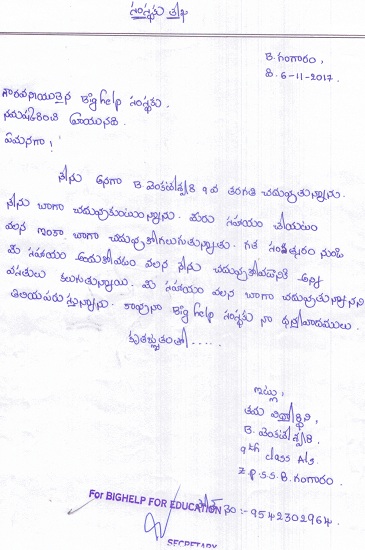 సంస్థకు లేఖ
B. గంగారం,
తే. 6-11-2017.
గౌరవనీయులైన Big help సంస్థకు.
నమస్కరించి వ్రాయునది.
ఏమనగా!
నేను అనగా B. వెంకటేశ్వరి 9వ తరగతి చదువుతున్నాను.
నేను బాగా చదువుకుంటున్నాను. మీరు సహాయం చేయటం
వలన ఇంకా బాగా చదువుకోగలుగుతున్నాను. గత సంవత్సరం నుండి
మీ సహాయం అందుకోవటం వలన నేను చదువుకోవడానికి అన్ని
వసతులు కలుగుతున్నాయి. మీ సహాయం వలన బాగా చదువుతున్నానని
తెలియపరుస్తున్నాను. కావున Big help సంస్థకు నా ధన్యవాదములు.
కృతజ్ఞతలతో.....
ఇట్లు,
తమ విద్యార్థిని,
B. వెంకటేశ్వరి.
9th class A/s.
Z.p.s.s. B. గంగారం.
నం:- 9542302964.
For BIGHELP FOR EDUCATION
SECRETARY